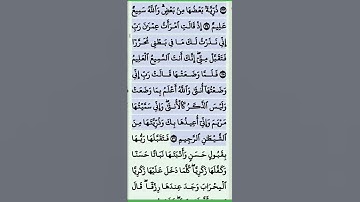 ذُرِّيَّةَۢ بَعْضُهَا مِنۢ بَعْضٍ وَٱللَّهُ سَمِيعٌ
عَلِيمٌ ۝ إِذْ قَالَتِ ٱمْرَأَتُ عِمْرَٰنَ رَبِّ
إِنِّى نَذَرْتُ لَكَ مَا فِى بَطْنِى مُحَرَّرًا
فَتَقَبَّلْ مِنِّىٓ إِنَّكَ أَنتَ ٱلسَّمِيعُ ٱلْعَلِيمُ
۝ فَلَمَّا وَضَعَتْهَا قَالَتْ رَبِّ إِنِّى
وَضَعْتُهَآ أُنثَىٰ وَٱللَّهُ أَعْلَمُ بِمَا وَضَعَتْ
وَلَيْسَ ٱلذَّكَرُ كَٱلْأُنثَىٰ وَإِنِّى سَمَّيْتُهَا
مَرْيَمَ وَإِنِّىٓ أُعِيذُهَا بِكَ وَذُرِّيَّتَهَا مِنَ
ٱلشَّيْطَٰنِ ٱلرَّجِيمِ ۝ فَتَقَبَّلَهَا رَبُّهَا
بِقَبُولٍ حَسَنٍ وَأَنۢبَتَهَا نَبَاتًا حَسَنًا
وَكَفَّلَهَا زَكَرِيَّا كُلَّمَا دَخَلَ عَلَيْهَا زَكَرِيَّا
ٱلْمِحْرَابَ وَجَدَ عِندَهَا رِزْقًا قَالَ